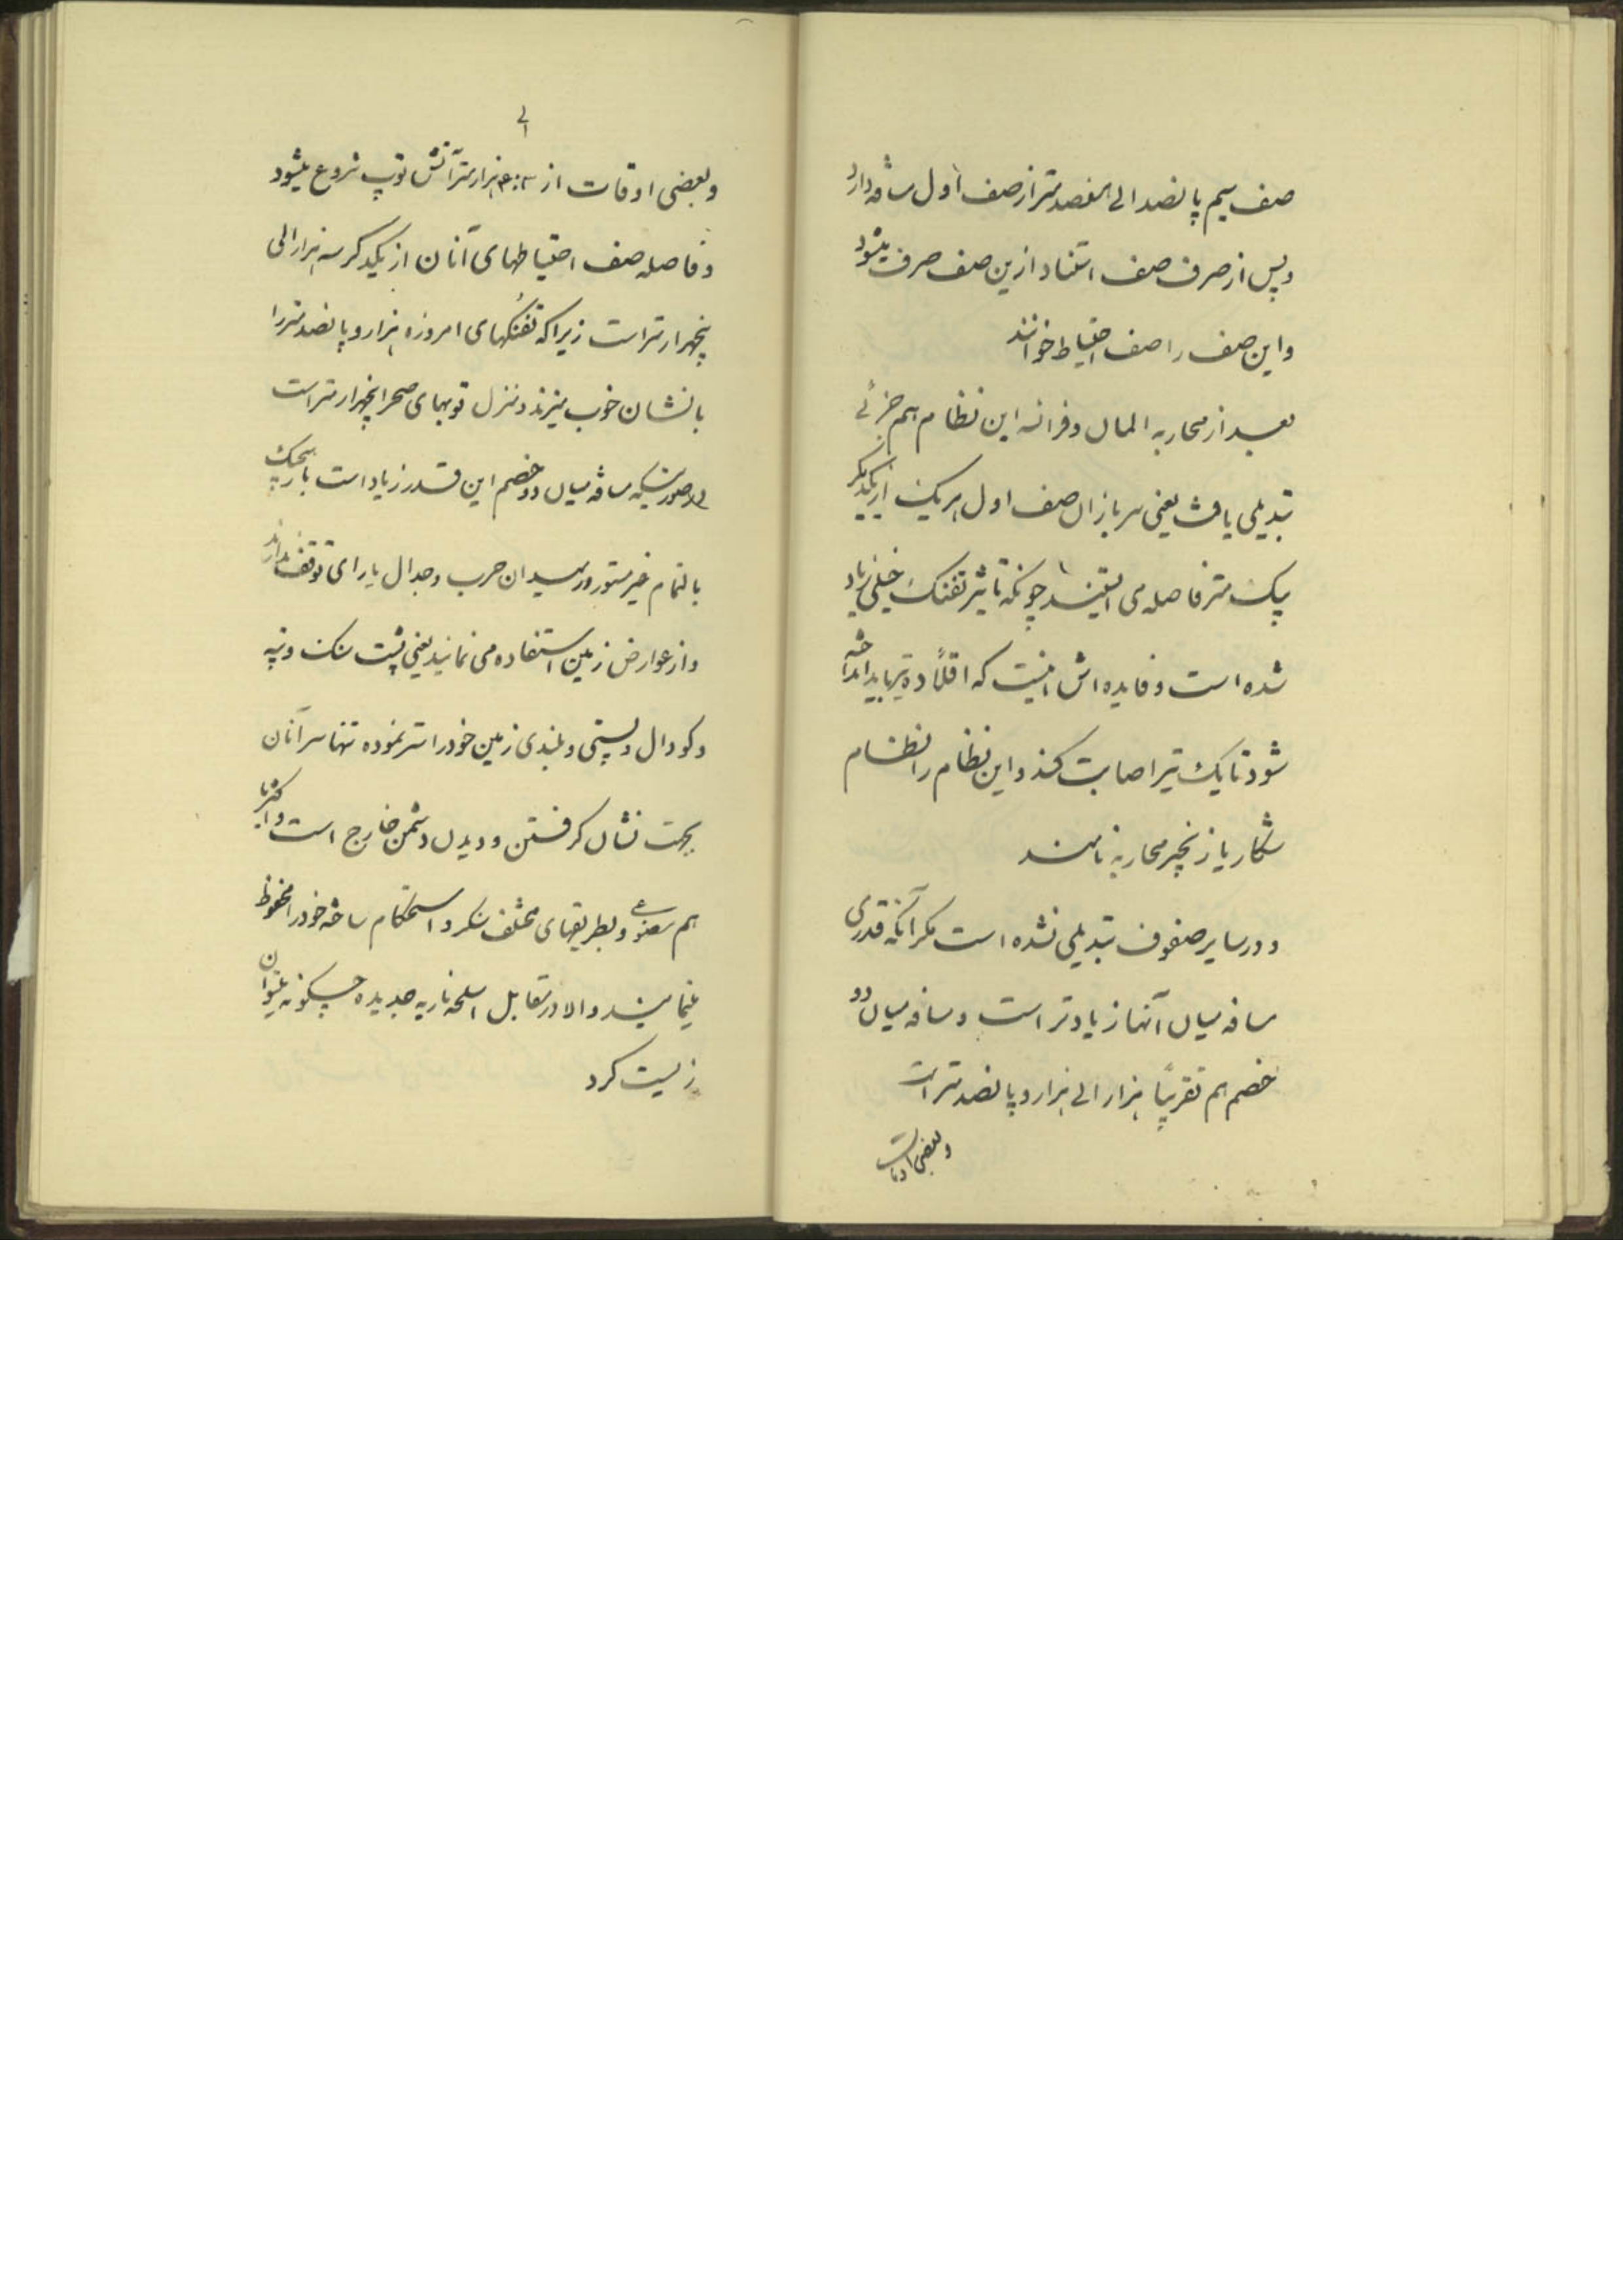 صف سیم پانصد الی هفصد متر از صف اول مسافه دارد
و پس از صرف صف استناد ازین صف صرف میشود
و این صف را صف احتیاط خوانند
بعد از محاربه المان و فرانسه این نظام هم جزئی
تبدیلی یافت یعنی سربازان صف اول هر یک از یکدیگر
یک متر فاصله می ایستند چونکه تاثیر تفنک خیلی زیاد
شده است و فایده اش اینست که اقلاً ده تیر باید انداخته
شود تا یک تیر اصابت کند و این نظام را نظام
شکار یا زنجیر محاربه نامند
و در سایر صفوف تبدیلی نشده است مکر آنکه قدری
مسافه میان آنها زیادتر است و مسافه میان دو
خصم هم تقریباً هزار الی هزار و پانصد متر است
و بعضی اوقات
و بعضی اوقات از ۳ الی ۴ هزار متر آتش توپ شروع میشود
و فاصله صف احتیاطهای آنان از یکدکر سه هزار الی
پنجهزار متر است زیرا که تفنکهای امروزه هزار و پانصد متر را
با نشان خوب میزند و منزل توپهای صحرا پنجهزار متر است
در صورتیکه مسافه میان دو خصم این قدر زیاد است باز هیچیک
بالتمام غیر مستور در میدان حرب و جدال یارای توقف ندارند
و از عوارض زمین استفاده می نمایند یعنی پشت سنک و تپه
و کودال و پستی و بلندی زمین خود را ستر نموده تنها سر آنان
بجهت نشان کرفتن و دیدن دشمن خارج است و اکثرها
هم مصنوعی و بطریقهای مختلف سنکر و استحکام ساخته خود را محفوظ
مینمایند و الا در مقابل اسلحه ناریه جدیده چسکونه میتوان
زیست کرد